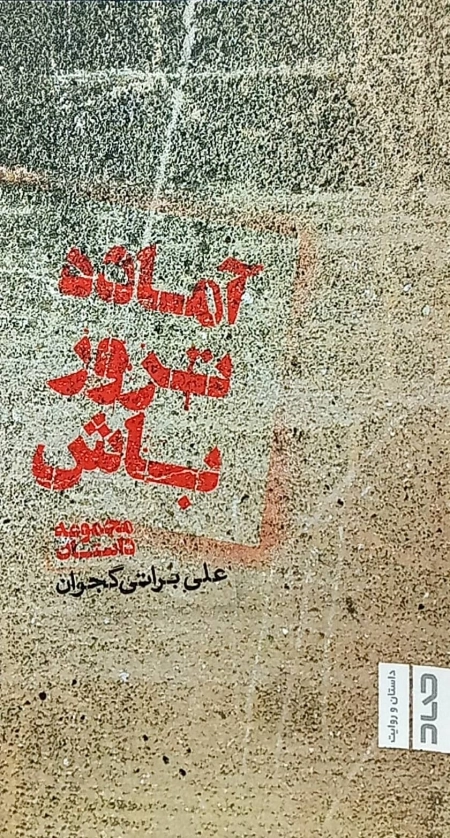 آماده
ترور
باش
مجموعه
داستان
علی براتی گجوان
داستان و روایت
صاد